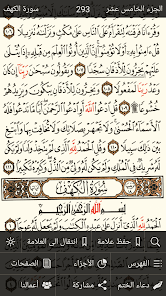 الجزء الخامس عشر 293 سورة الكهف
وَقُرْءَانًا فَرَقْنَاهُ لِتَقْرَأَهُ عَلَى النَّاسِ عَلَى مُكْثٍ وَنَزَّلْنَاهُ تَنزِيلًا ١٠٦
قُلْ ءَامِنُوا بِهِ أَوْ لَا تُؤْمِنُوا إِنَّ الَّذِينَ أُوتُوا الْعِلْمَ مِن قَبْلِهِ إِذَا يُتْلَى
عَلَيْهِمْ يَخِرُّونَ لِلْأَذْقَانِ سُجَّدًا ١٠٧ وَيَقُولُونَ سُبْحَانَ رَبِّنَا إِن كَانَ وَعْدُ رَبِّنَا
لَمَفْعُولًا ١٠٨ وَيَخِرُّونَ لِلْأَذْقَانِ يَبْكُونَ وَيَزِيدُهُمْ خُشُوعًا ١٠٩
قُلِ ادْعُوا اللَّهَ أَوِ ادْعُوا الرَّحْمَنَ أَيًّا مَّا تَدْعُوا فَلَهُ الْأَسْمَاءُ الْحُسْنَى
وَلَا تَجْهَرْ بِصَلَاتِكَ وَلَا تُخَافِتْ بِهَا وَابْتَغِ بَيْنَ ذَلِكَ سَبِيلًا ١١٠
وَقُلِ الْحَمْدُ لِلَّهِ الَّذِي لَمْ يَتَّخِذْ وَلَدًا وَلَمْ يَكُن لَّهُ شَرِيكٌ فِي الْمُلْكِ
وَلَمْ يَكُن لَّهُ وَلِيٌّ مِّنَ الذُّلِّ وَكَبِّرْهُ تَكْبِيرًا ١١١
سُورَةُ الْكَهْفِ
بِسْمِ اللَّهِ الرَّحْمَنِ الرَّحِيمِ
الْحَمْدُ لِلَّهِ الَّذِي أَنزَلَ عَلَى عَبْدِهِ الْكِتَابَ وَلَمْ يَجْعَل لَّهُ
حفظ علامة انتقال الى العلامة
الفهرس الأجزاء الصفحات
دعاء الختم مشاركة أعمالنا